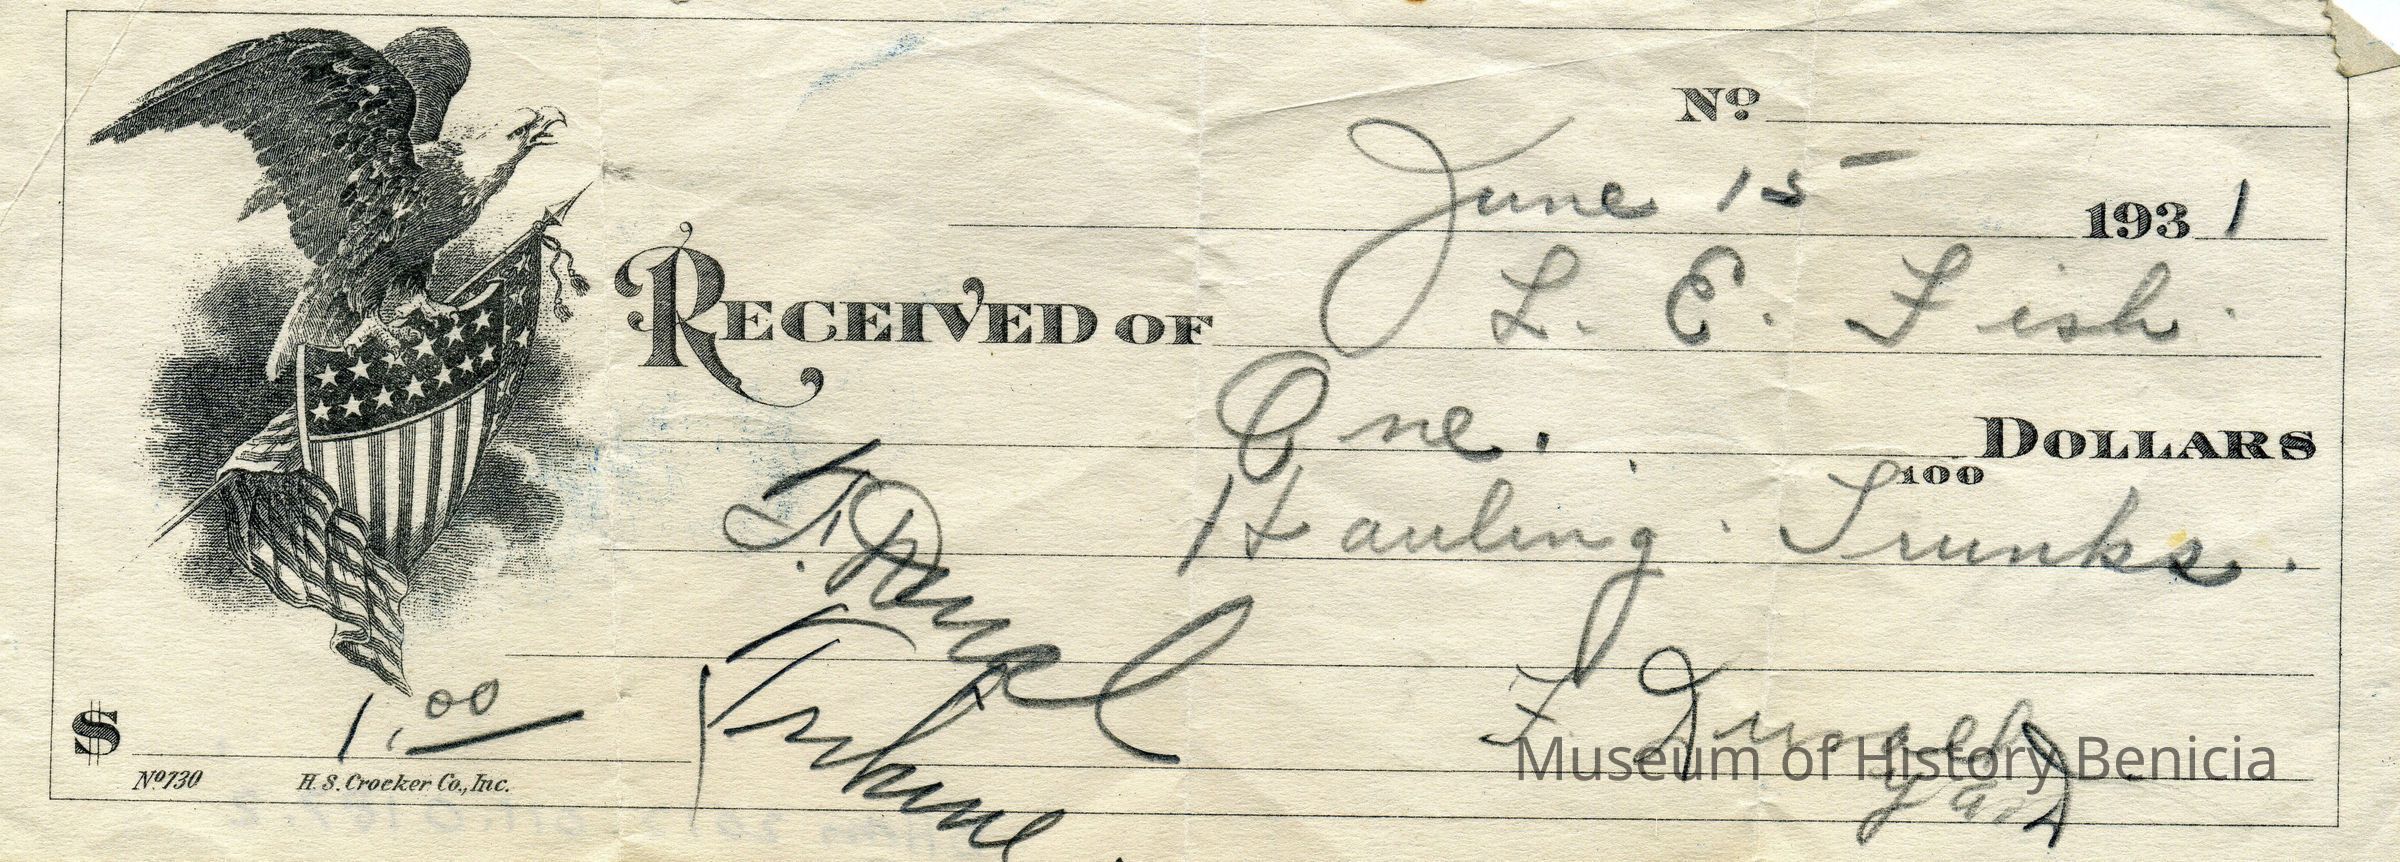 Nº
June 15 - 1931
RECEIVED OF L. E. Fish.
One. DOLLARS
100
Hauling. Trunks.
F.
$ 1.00
Museum of History Benicia
Nº 730 H. S. Crocker Co., Inc.